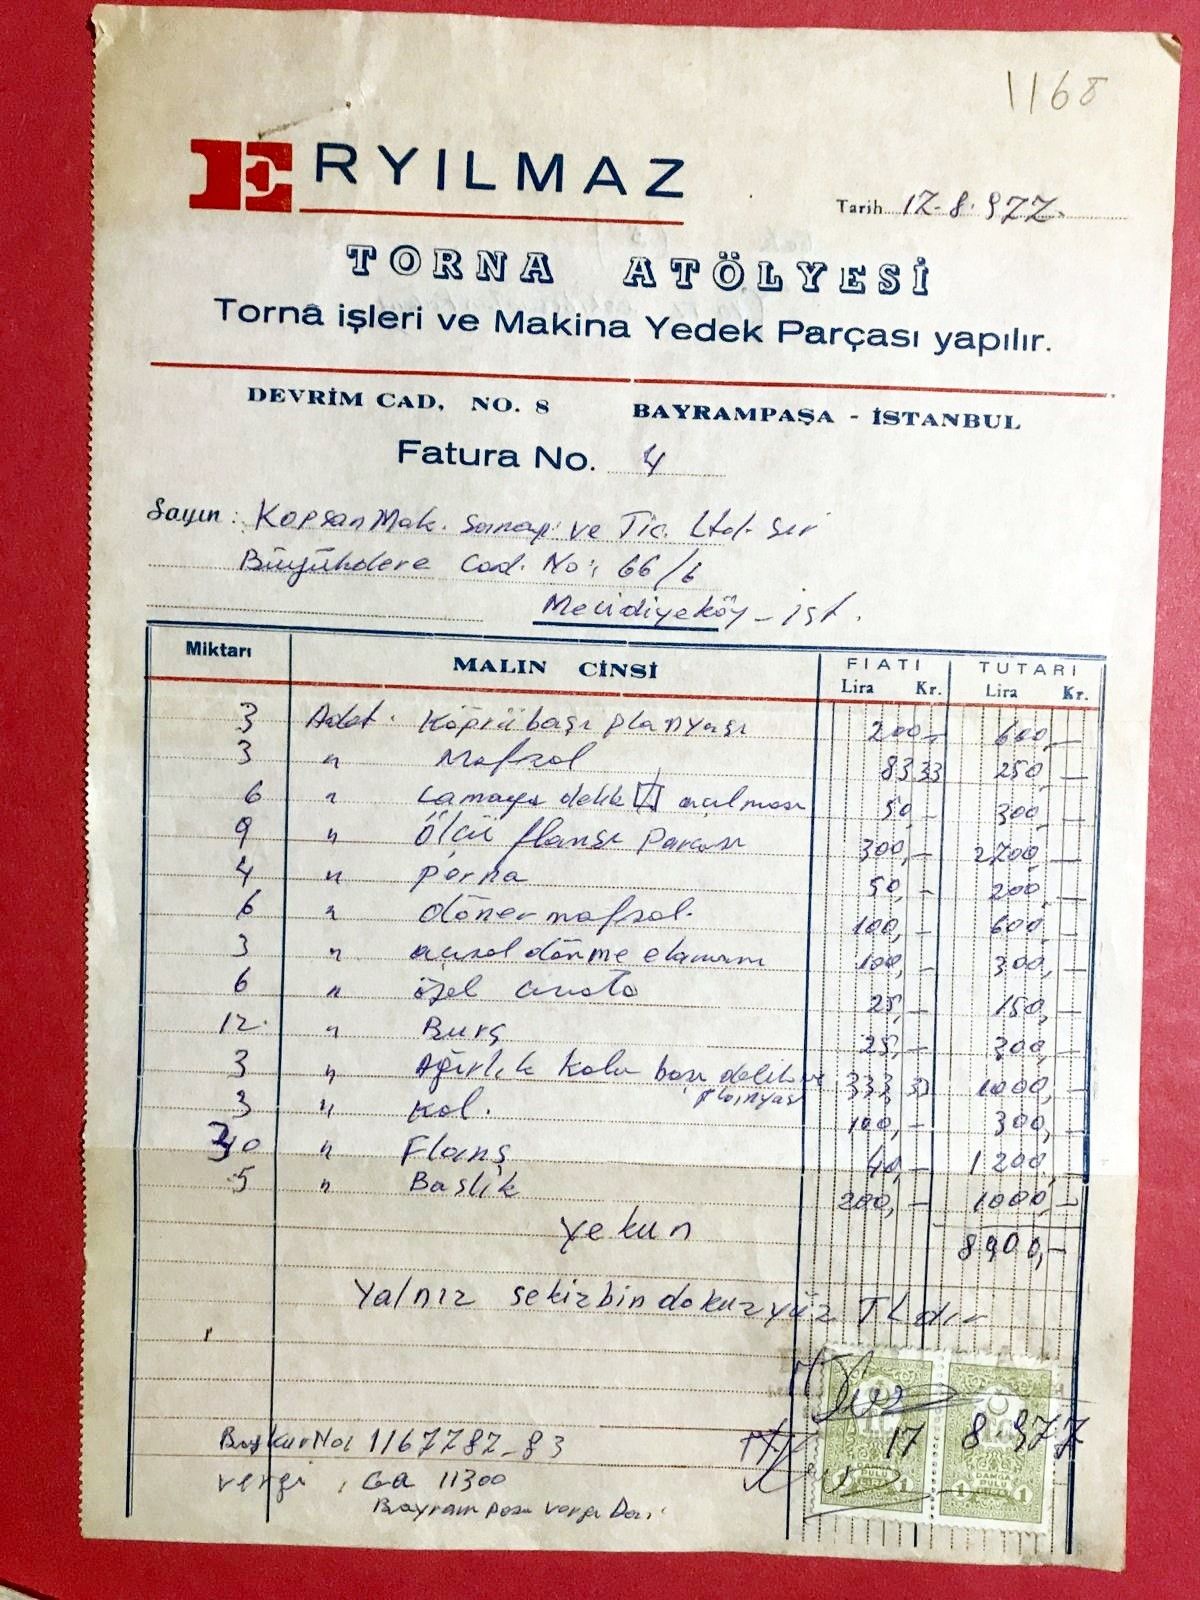 1168
ERYILMAZ
Tarih 17-8-977
TORNA ATÖLYESİ
Tornâ işleri ve Makina Yedek Parçası yapılır.
DEVRİM CAD, NO. 8 BAYRAMPAŞA - İSTANBUL
Fatura No. 4
Sayın: Kopsan Mak. Sanayi ve Tic. Ltd. Şir
Büyükdere Cad. No: 66/6
Mecidiyeköy - İşt.
Miktarı MALIN CİNSİ FIATI TUTARI
Lira Kr. Lira Kr.
3 Adet. Köprübaşı planyası 200,- 600,-
3 " Mafsal 8333 250,-
6 " Lamaya delik açılması 50,- 300,-
9 " Ölçü flanşı parçası 300,- 2700,-
4 " perna 50,- 200,-
6 " döner mafsal. 100,- 600,-
3 " açısal dönme elamanı 100,- 300,-
6 " özel 25,- 150,-
12. " Burç 25,- 300,-
3 " Ağırlık Kolu başı delik ve planyası 333 33 1000,-
3 " Kol. 100,- 300,-
30 " Flanş 40,- 1200,-
5 " Başlık 200,- 1000,-
Yekun 8900,-
Yalnız sekizbindokuzyüz TL dır
17 8.977
DAMGA PULU 1 LİRA 1
DAMGA PULU 1 LİRA 1
Bağkur No: 1167787-83
vergi : 11300
Bayrampaşa vergi Dai.